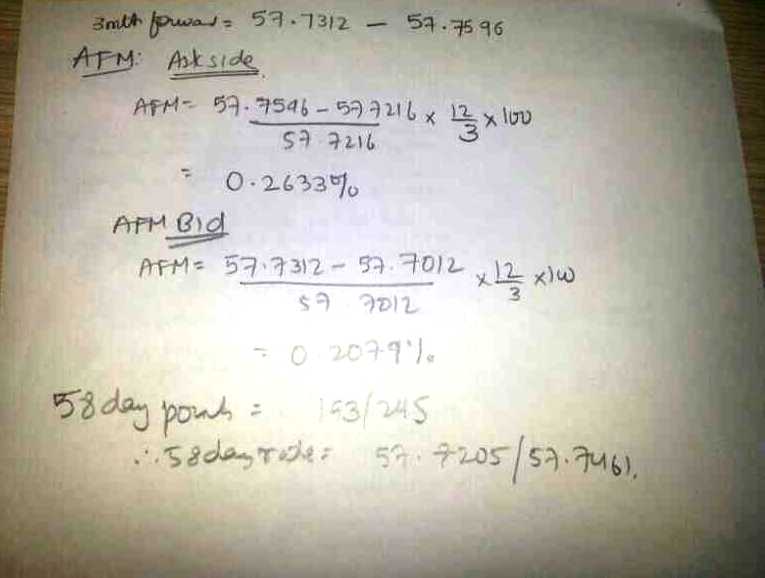 3mth forward = 57.7312 — 57.7596
AFM: Ask side
AFM = 57.7596 - 57.7216 x 12/3 x 100
57.7216
= 0.2633%
AFM Bid
AFM = 57.7312 - 57.7012 x 12/3 x 100
57.7012
= 0.2079%
58 day points = 193/245
∴ 58 day rate = 57.7205/57.7461.